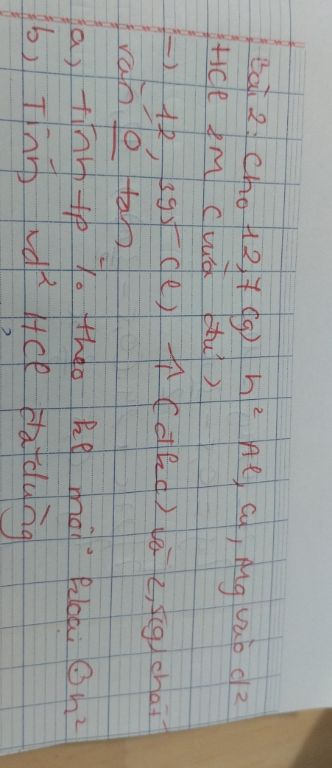 Bài 2: Cho 12,7(g) h² Al, Cu, Mg vào d²
HCl 2M (vừa đủ)
→ 12,395(l) ↑ (đkc) và 2,5(g) chất
rắn ō tan
a) tính tp % theo kl mỗi kloại ⊕ h²
b) Tính Vd² HCl đã dùng